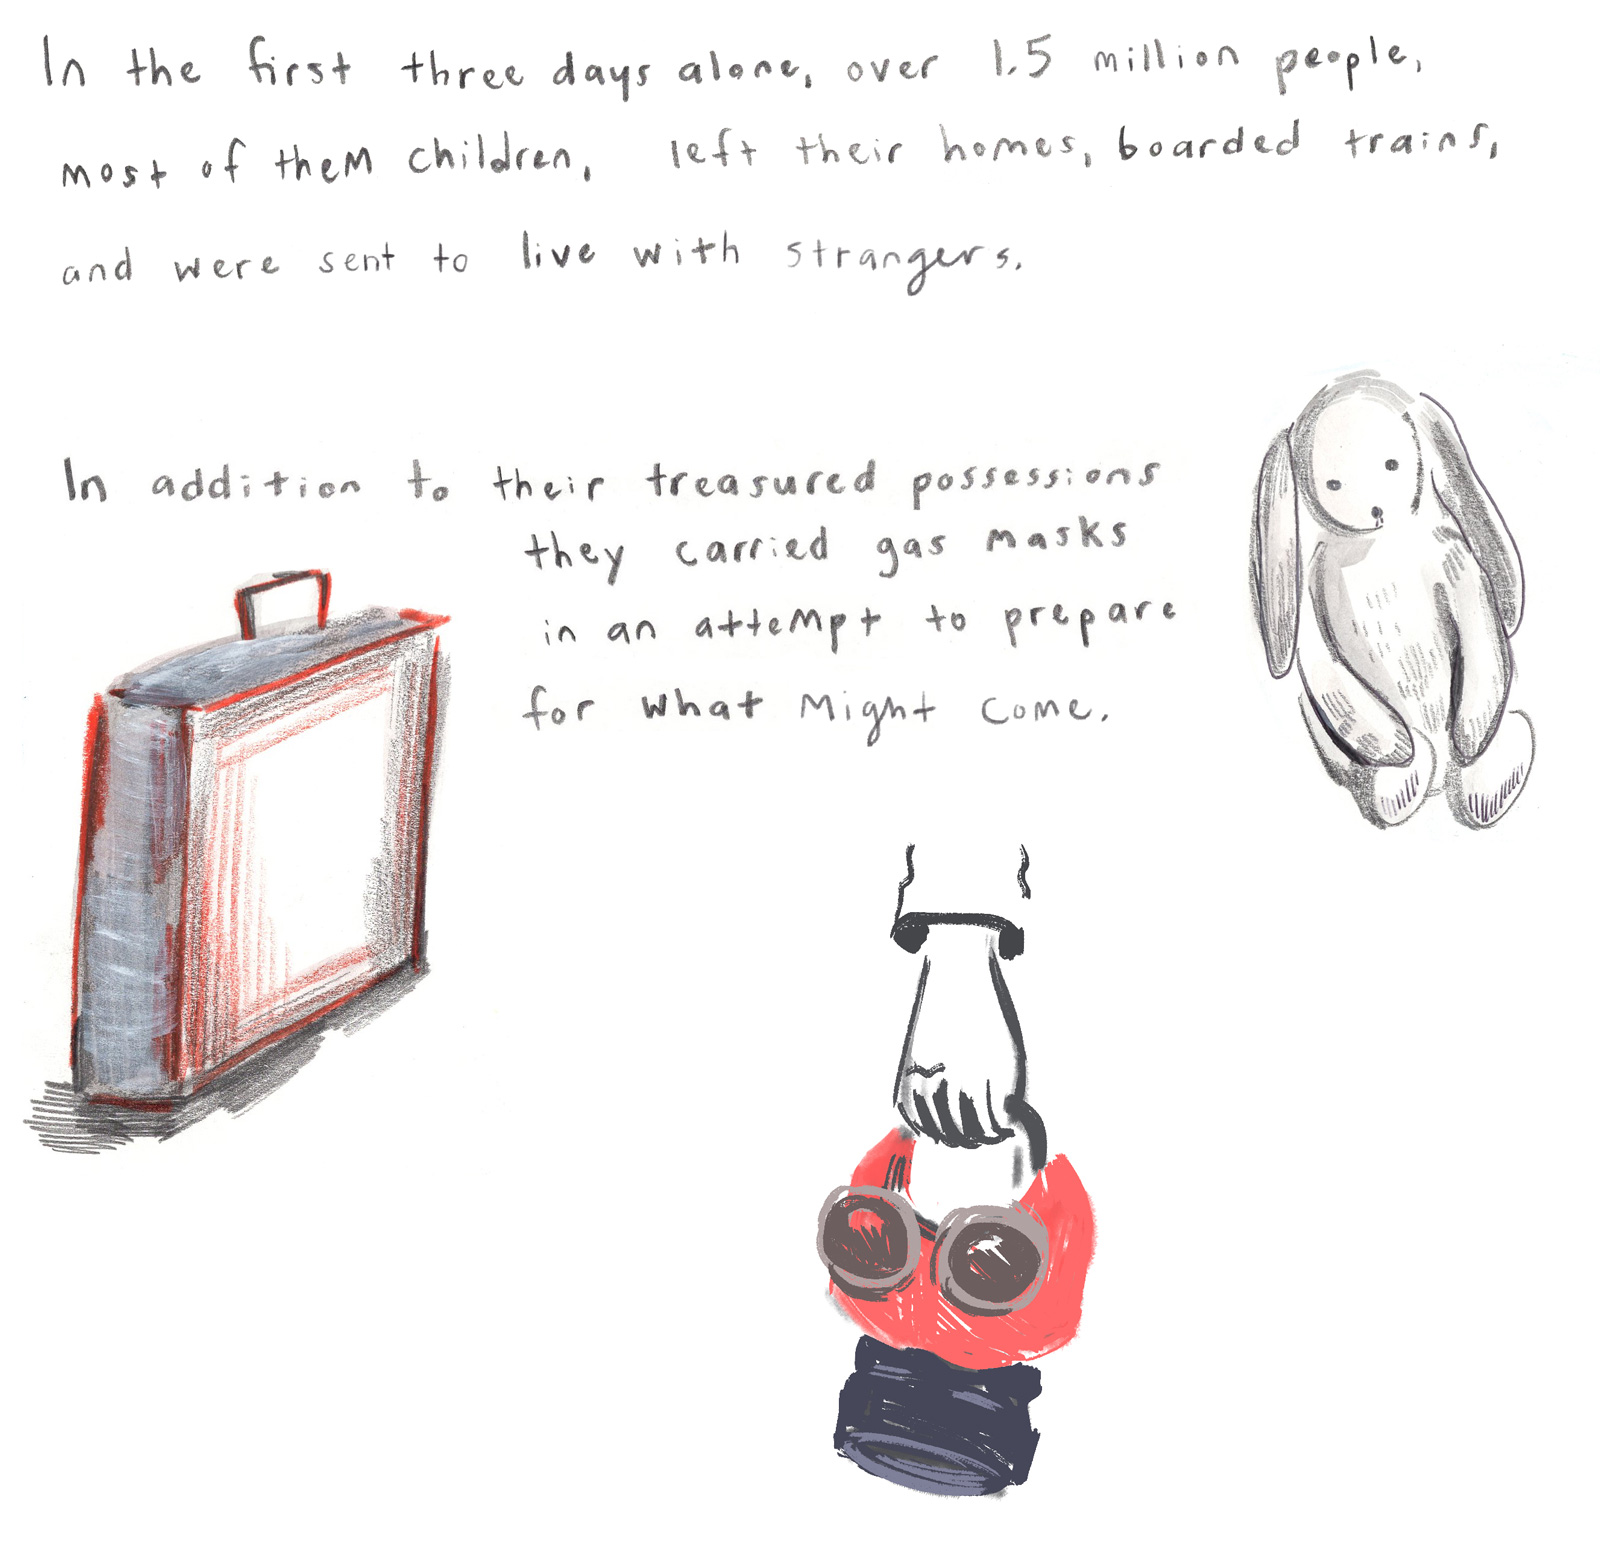 In the first three days alone, over 1.5 million people,
most of them children, left their homes, boarded trains,
and were sent to live with strangers.
In addition to their treasured possessions
they carried gas masks
in an attempt to prepare
for what might come.